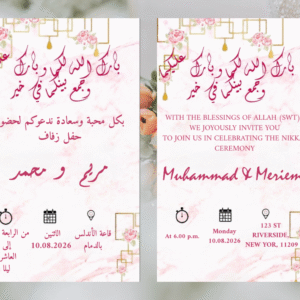 بارك الله لكما وبارك عليكما
وجمع بينكما في خير
بكل محبة وسعادة ندعوكم لحضور
حفل زفاف
مريم و محمد
قاعة الأندلس
بالدمام
الاثنين
10.08.2026
من الرابعة
إلى
العاشرة
ليلا
بارك الله لكما وبارك عليكما
وجمع بينكما في خير
WITH THE BLESSINGS OF ALLAH (SWT)
WE JOYOUSLY INVITE YOU
TO JOIN US IN CELEBRATING THE NIKK
CEREMONY
Muhammad & Meriem
At 6.00 p.m.
Monday
10.08.2026
123 ST
RIVERSIDE,
NEW YOR, 11209